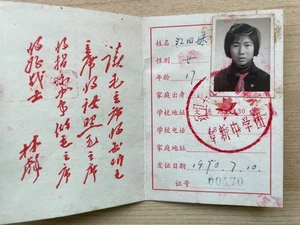 读毛主席的书听毛
主席的话照毛主席
的指示办事做毛主席
的好战士
林彪
姓名
性别 女
年龄 17
家庭出身
学校地址
学校电话
家庭地址
发证日期 1970.7.10.
证号